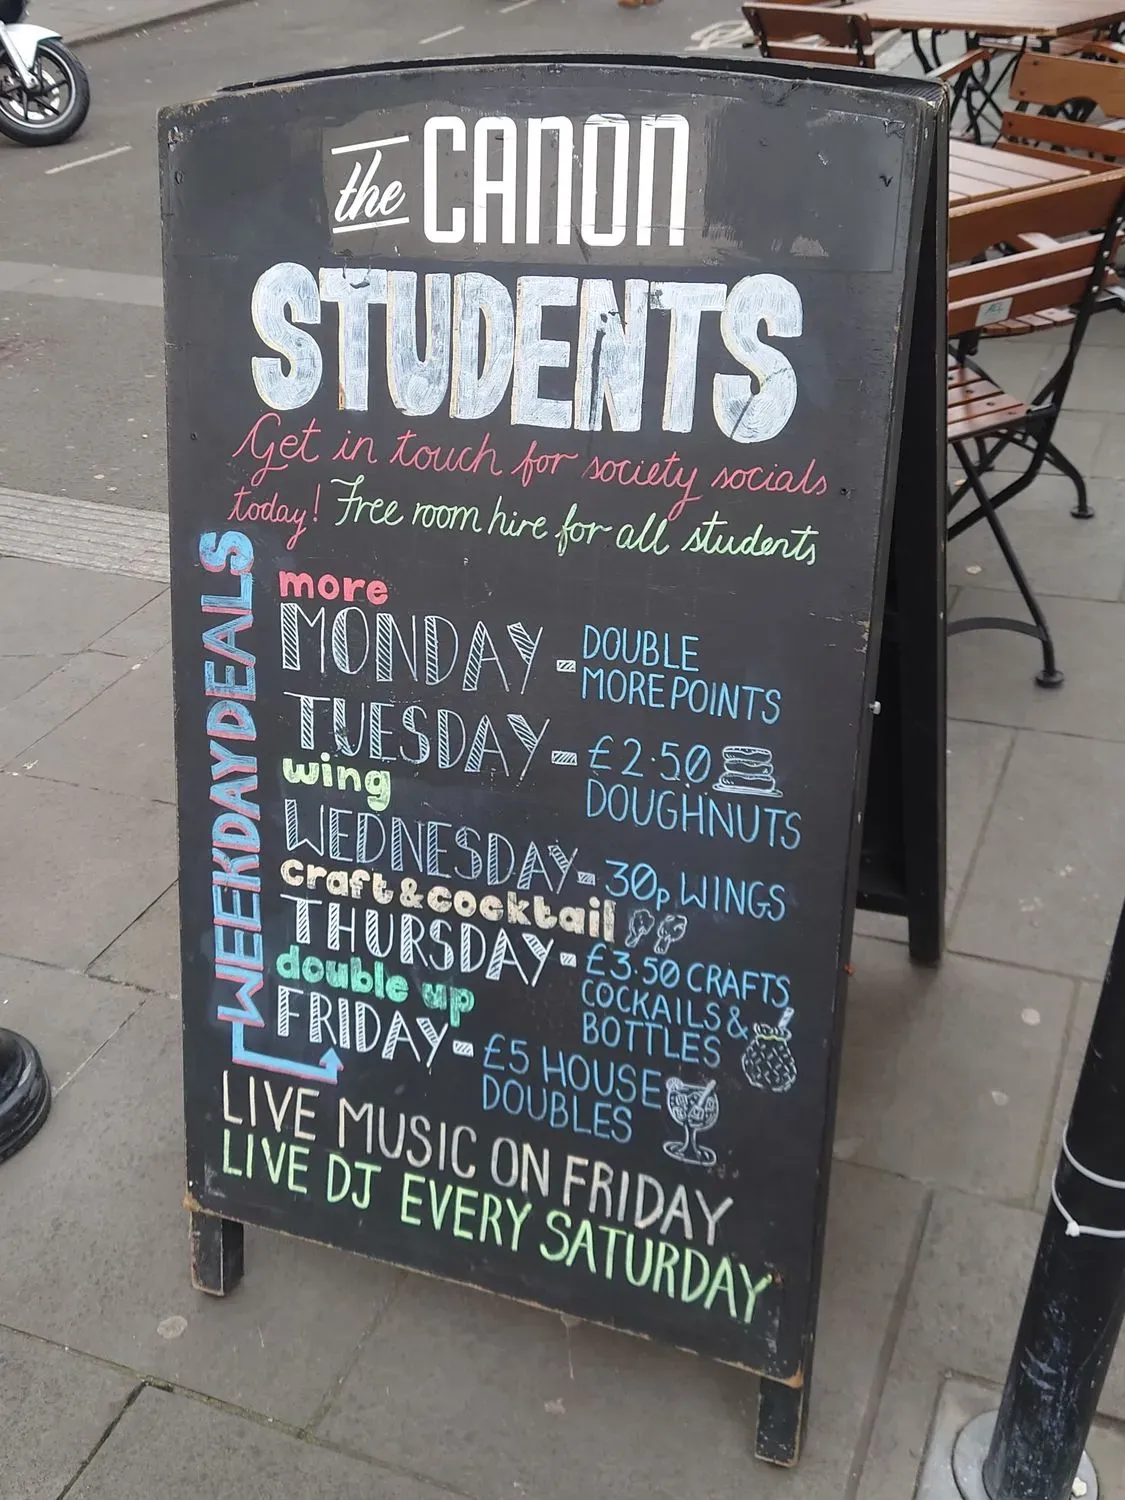 the CANON
STUDENTS
Get in touch for society socials
today! Free room hire for all students
WEEKDAY DEALS
more
MONDAY - DOUBLE
MORE POINTS
TUESDAY - £2.50
DOUGHNUTS
wing
WEDNESDAY - 30p WINGS
craft & cocktail
THURSDAY - £3.50 CRAFTS
COCKAILS &
BOTTLES
double up
FRIDAY - £5 HOUSE
DOUBLES
LIVE MUSIC ON FRIDAY
LIVE DJ EVERY SATURDAY